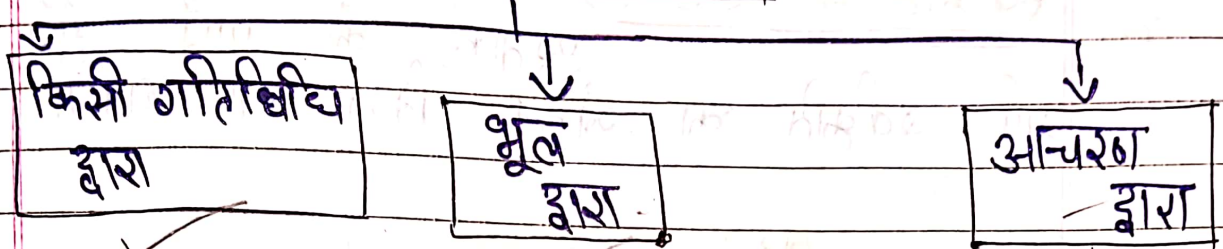 किसी गतिविधि
द्वारा
भूल
द्वारा
आचरण
द्वारा